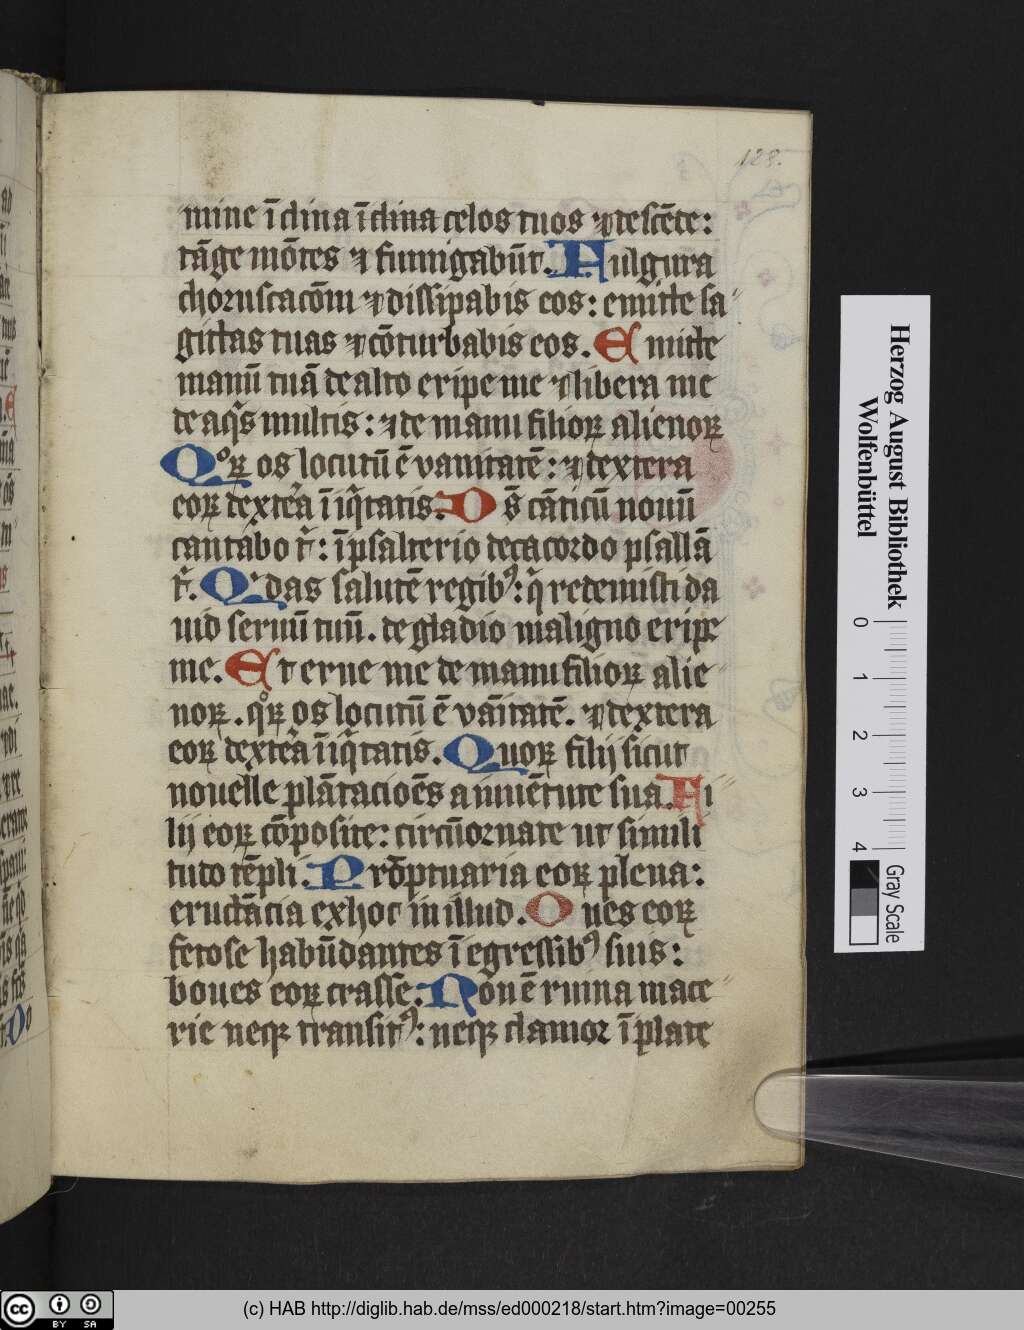 128.
mine īclina īclina celos tuos ⁊ descēde:
tāge mōtes ⁊ fumigabūt. Fulgura
choruscacōm ⁊ dissipabis eos: emitte sa
gittas tuas ⁊ cōturbabis eos. Emitte
manū tuā de alto eripe me ⁊ libera me
de aqͥs multis: ⁊ de manu filioꝝ alienoꝝ
Qͦꝝ os locutū ē vanitatē: ⁊ dextera
eoꝝ dextēa īiqͥtatis. Ds̄ cāticū nouū
cantabo t̄: ī psalterio decacordo psallā
t̄. Qͥ das salutē regibꝰ: qͥ redemisti da
uid seruū tuū. de gladio maligno eripe
me. Et erue me de manu filioꝝ alie
noꝝ. qͦꝝ os locutū ē vāitatē. ⁊ dextera
eoꝝ dextēa īiqͥtatis. Quoꝝ filij sicut
nouelle plātacioēs a iuuētute sua. Fi
lij eoꝝ cōposite: circūornate ut simili
tudo tēpli. Prōptuaria eoꝝ plena:
eructācia ex hoc in illud. Oues eoꝝ
fetose habūdantes ī egressibꝰ suis:
boues eoꝝ crasse. Non ē ruina mace
rie neqꝫ transitꝰ: neqꝫ clamor ī plate
Herzog August Bibliothek
Wolfenbüttel
0 1 2 3 4
Gray Scale
cc BY SA
(c) HAB http://diglib.hab.de/mss/ed000218/start.htm?image=00255